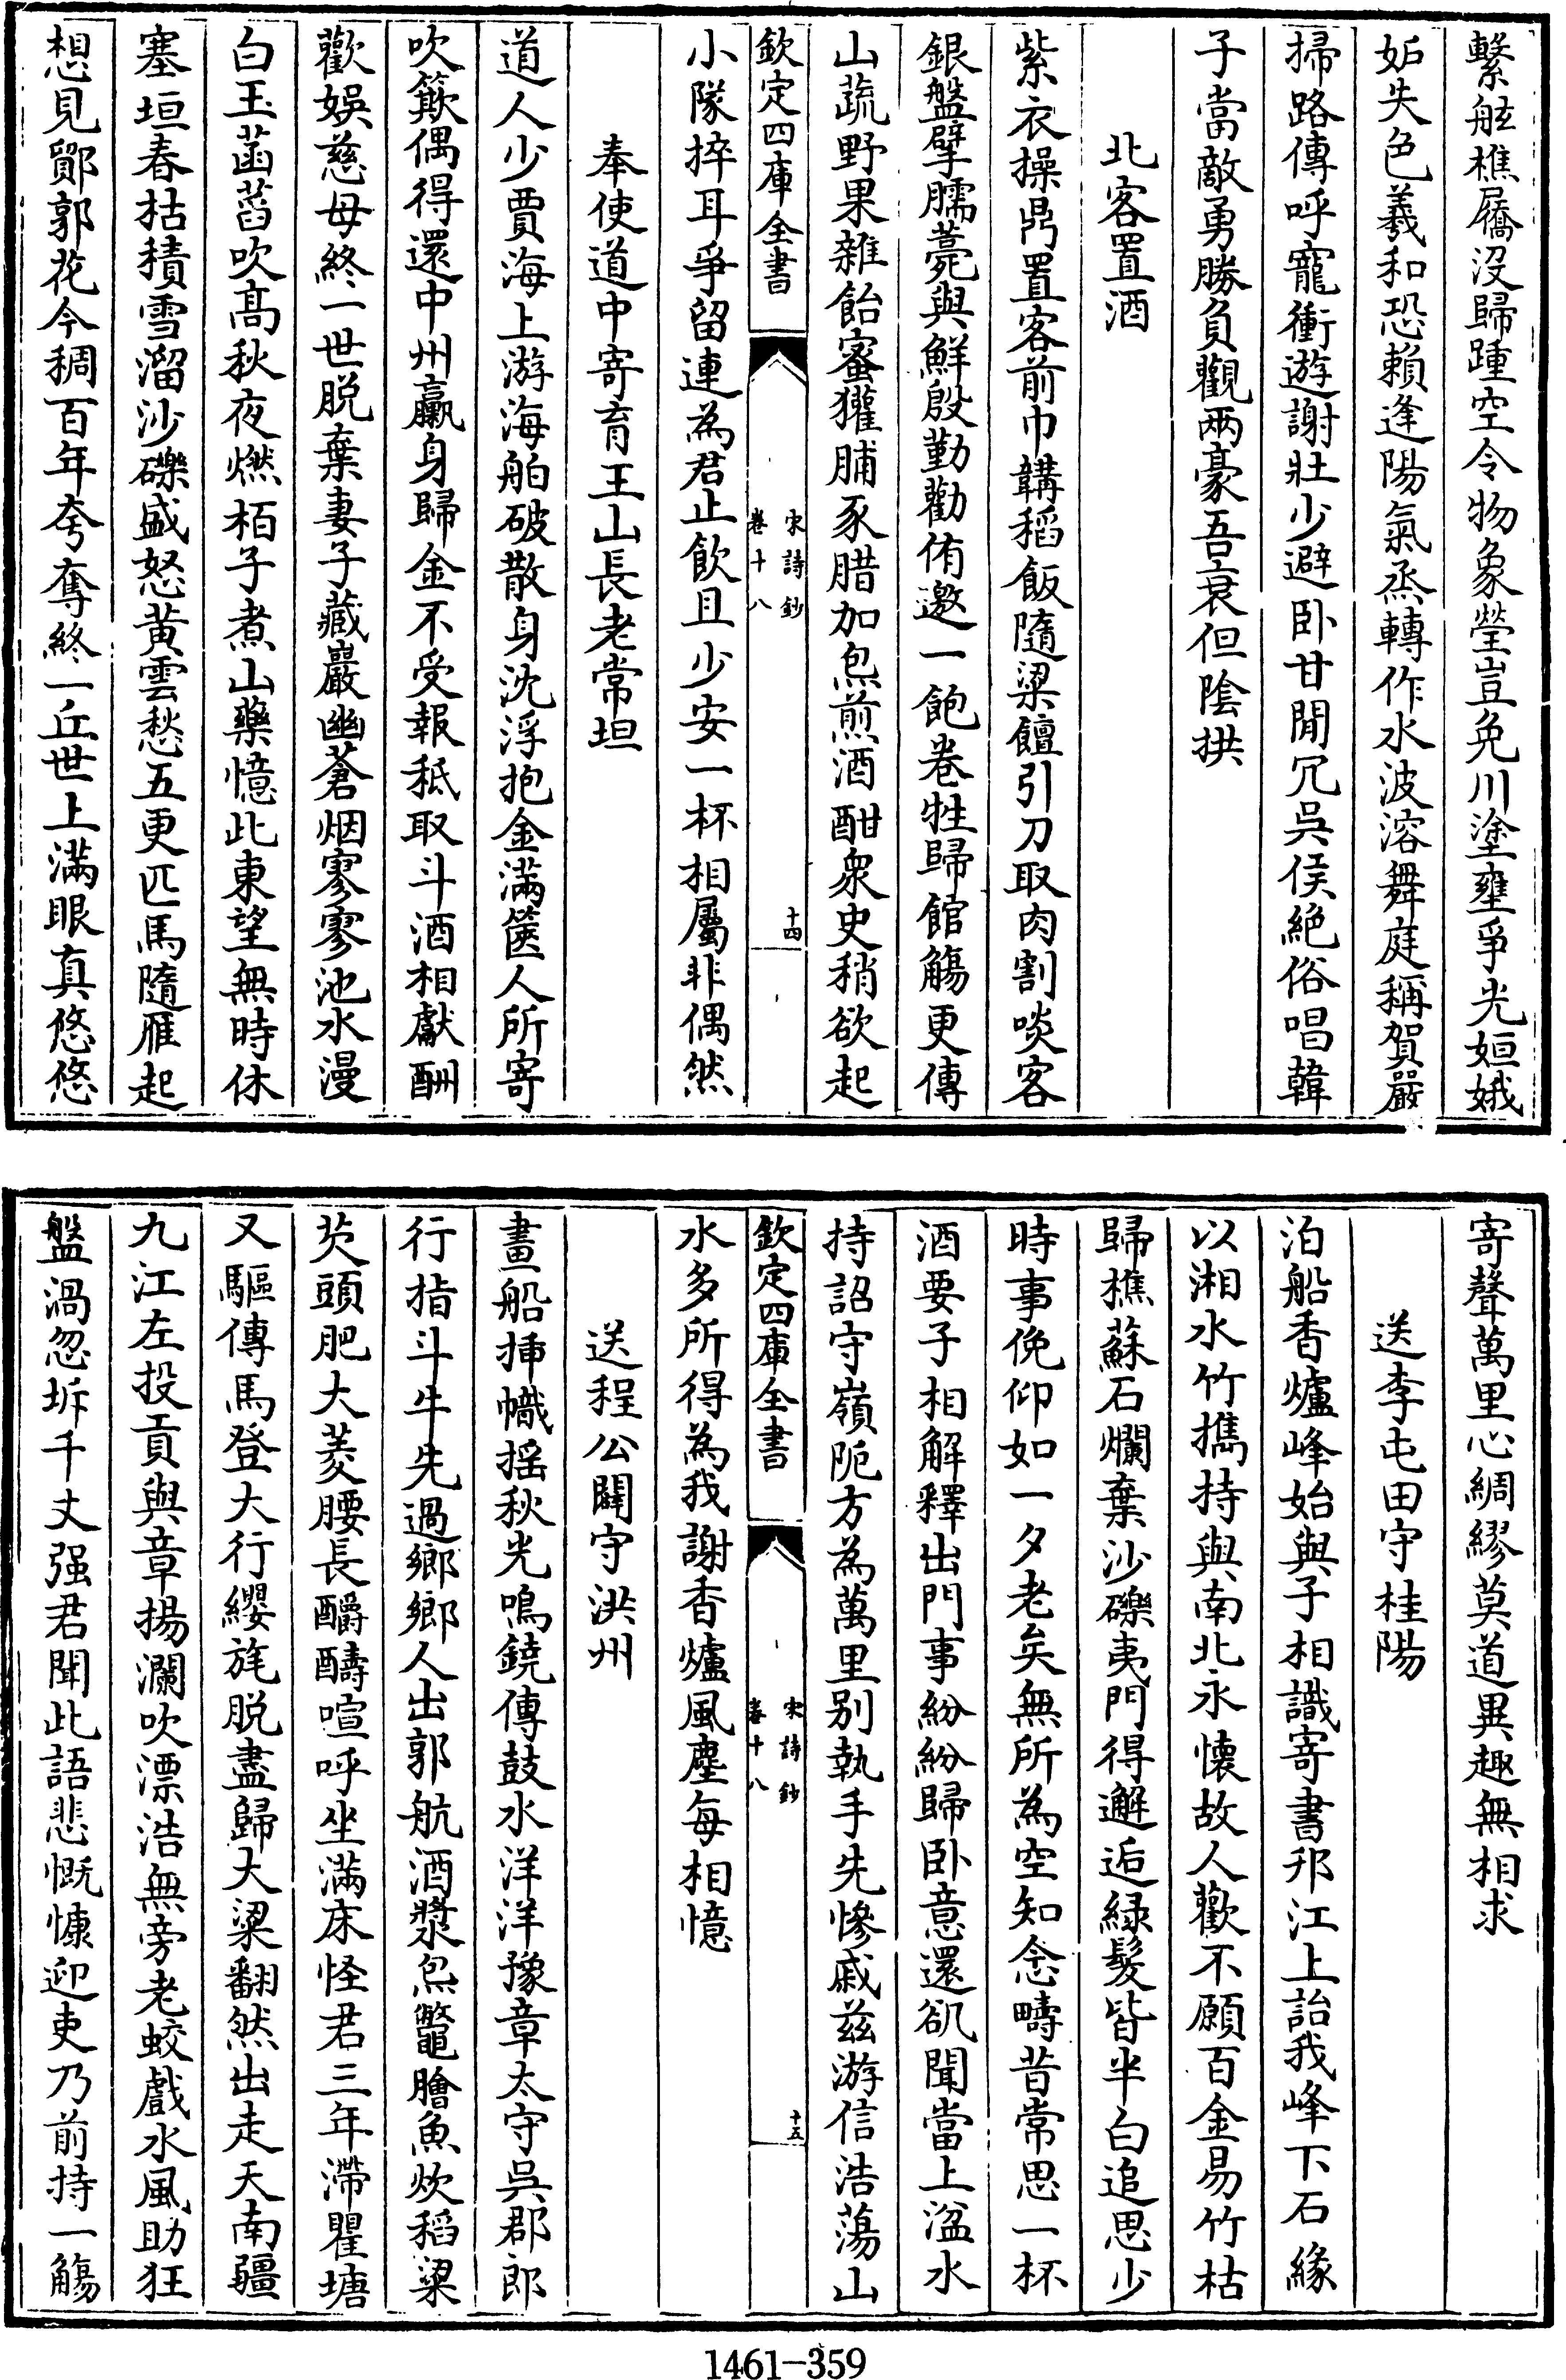 繫舷樵屩没歸踵空令物象瑩豈免川塗壅爭光姮娥
妬失色羲和恐頼逢陽氣烝轉作水波溶舞庭稱賀嚴
掃路傳呼寵衝遊謝壯少避卧甘閒冗吳侯絶俗唱韓
子當敵勇勝負觀兩豪吾衰但陰拱
北客置酒
紫衣操鼎置客前巾韝稻飯隨粱饘引刀取肉割啖客
銀盤擘臑薧與鮮殷勤勸侑邀一飽卷牲歸館觴更傳
山蔬野果雜飴蜜獾脯豕腊加炰煎酒酣衆史稍欲起
欽定四庫全書
宋詩鈔
卷十八
十四
小隊捽耳爭留連為君止飲且少安一杯相屬非偶然
奉使道中寄育王山長老常坦
道人少賈海上游海舶破散身沈浮抱金滿篋人所寄
吹簸偶得還中州羸身歸金不受報秪取斗酒相獻酬
歡娛慈母終一世脱棄妻子藏巖幽蒼烟寥寥池水漫
白玉菡萏吹髙秋夜燃栢子煮山藥憶此東望無時休
塞垣春枯積雪溜沙礫盛怒黄雲愁五更匹馬隨雁起
想見鄮郭花今稠百年夸奪終一丘世上滿眼真悠悠
寄聲萬里心綢繆莫道異趣無相求
送李屯田守桂陽
泊船香爐峰始與子相識寄書邗江上詒我峰下石緣
以湘水竹攜持與南北永懐故人歡不願百金易竹枯
歸樵蘇石爛棄沙礫夷門得邂逅緑髮皆半白追思少
時事俛仰如一夕老矣無所為空知念疇昔常思一杯
酒要子相解釋出門事紛紛歸卧意還訉聞當上湓水
持詔守嶺阨方為萬里别執手先慘戚茲游信浩蕩山
欽定四庫全書
宋詩鈔
卷十八
十五
水多所得為我謝香爐風塵每相憶
送程公闢守洪州
畫船揷幟摇秋光鳴鐃傳鼓水洋洋豫章太守吳郡郎
行指斗牛先過鄉鄉人出郭航酒漿炰鼈膾魚炊稻粱
芡頭肥大菱腰長釂醻喧呼坐滿床怪君三年滯瞿塘
又驅傳馬登大行纓旄脱盡歸大梁翻然出走天南疆
九江左投貢與章揚瀾吹漂浩無旁老蛟戲水風助狂
盤渦忽坼千丈强君聞此語悲慨慷迎吏乃前持一觴
1461-359